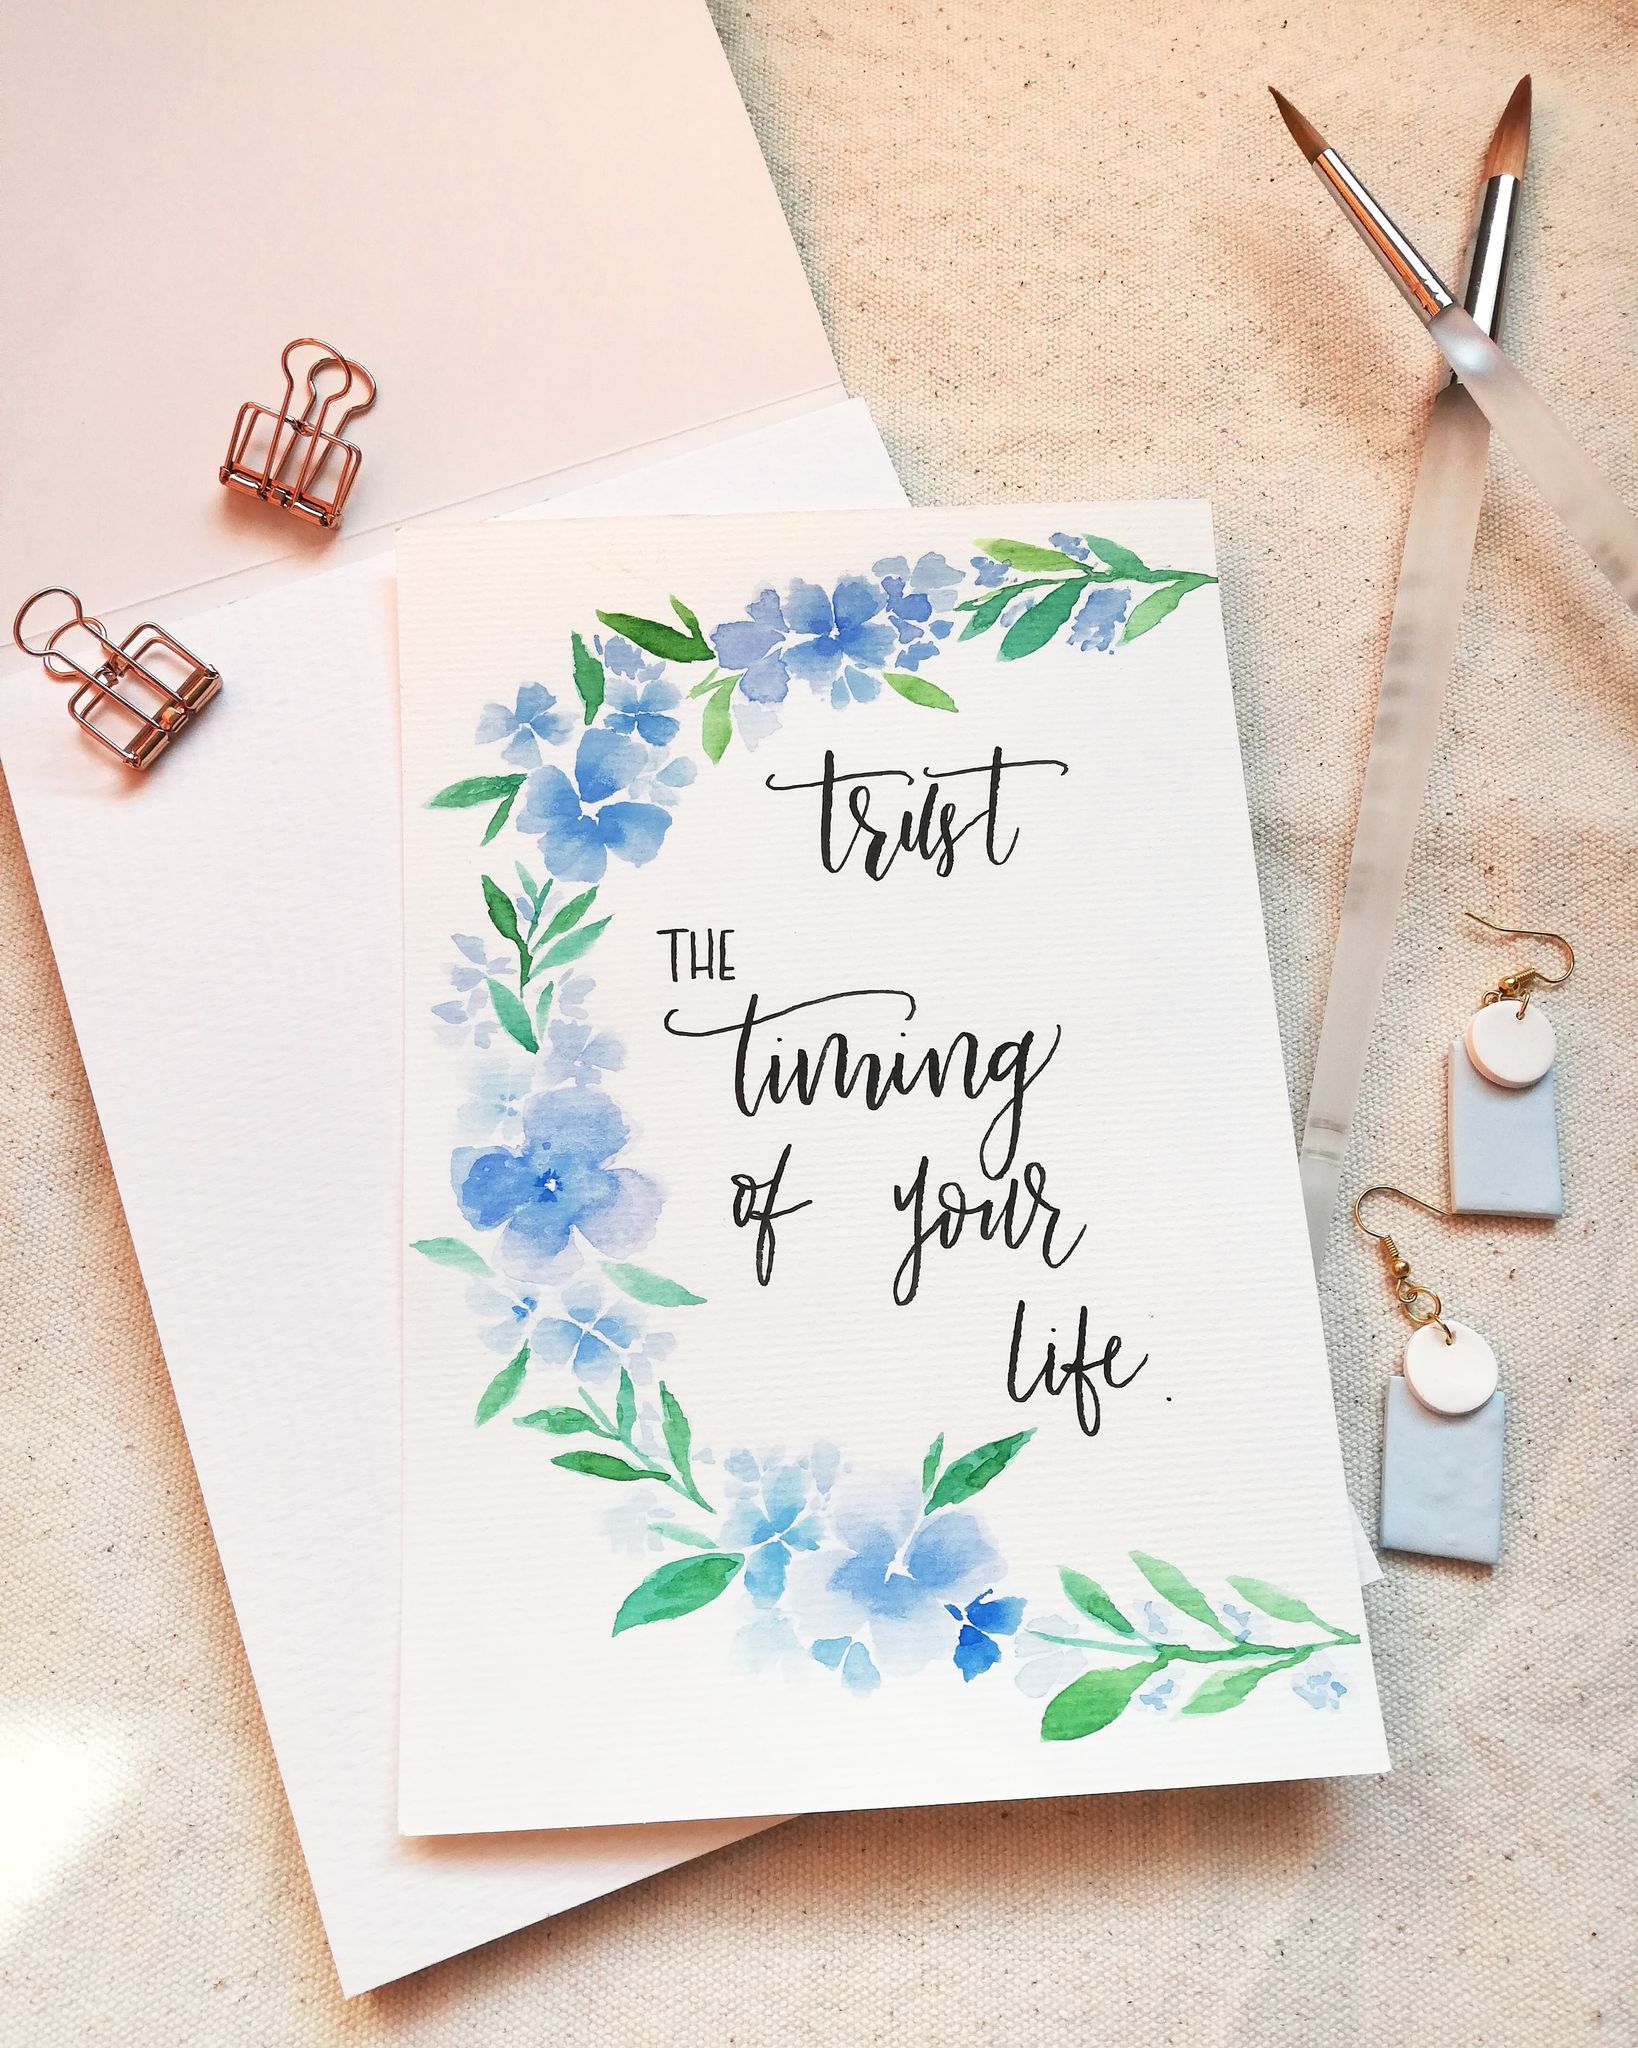 trust
THE
timing
of your
life.